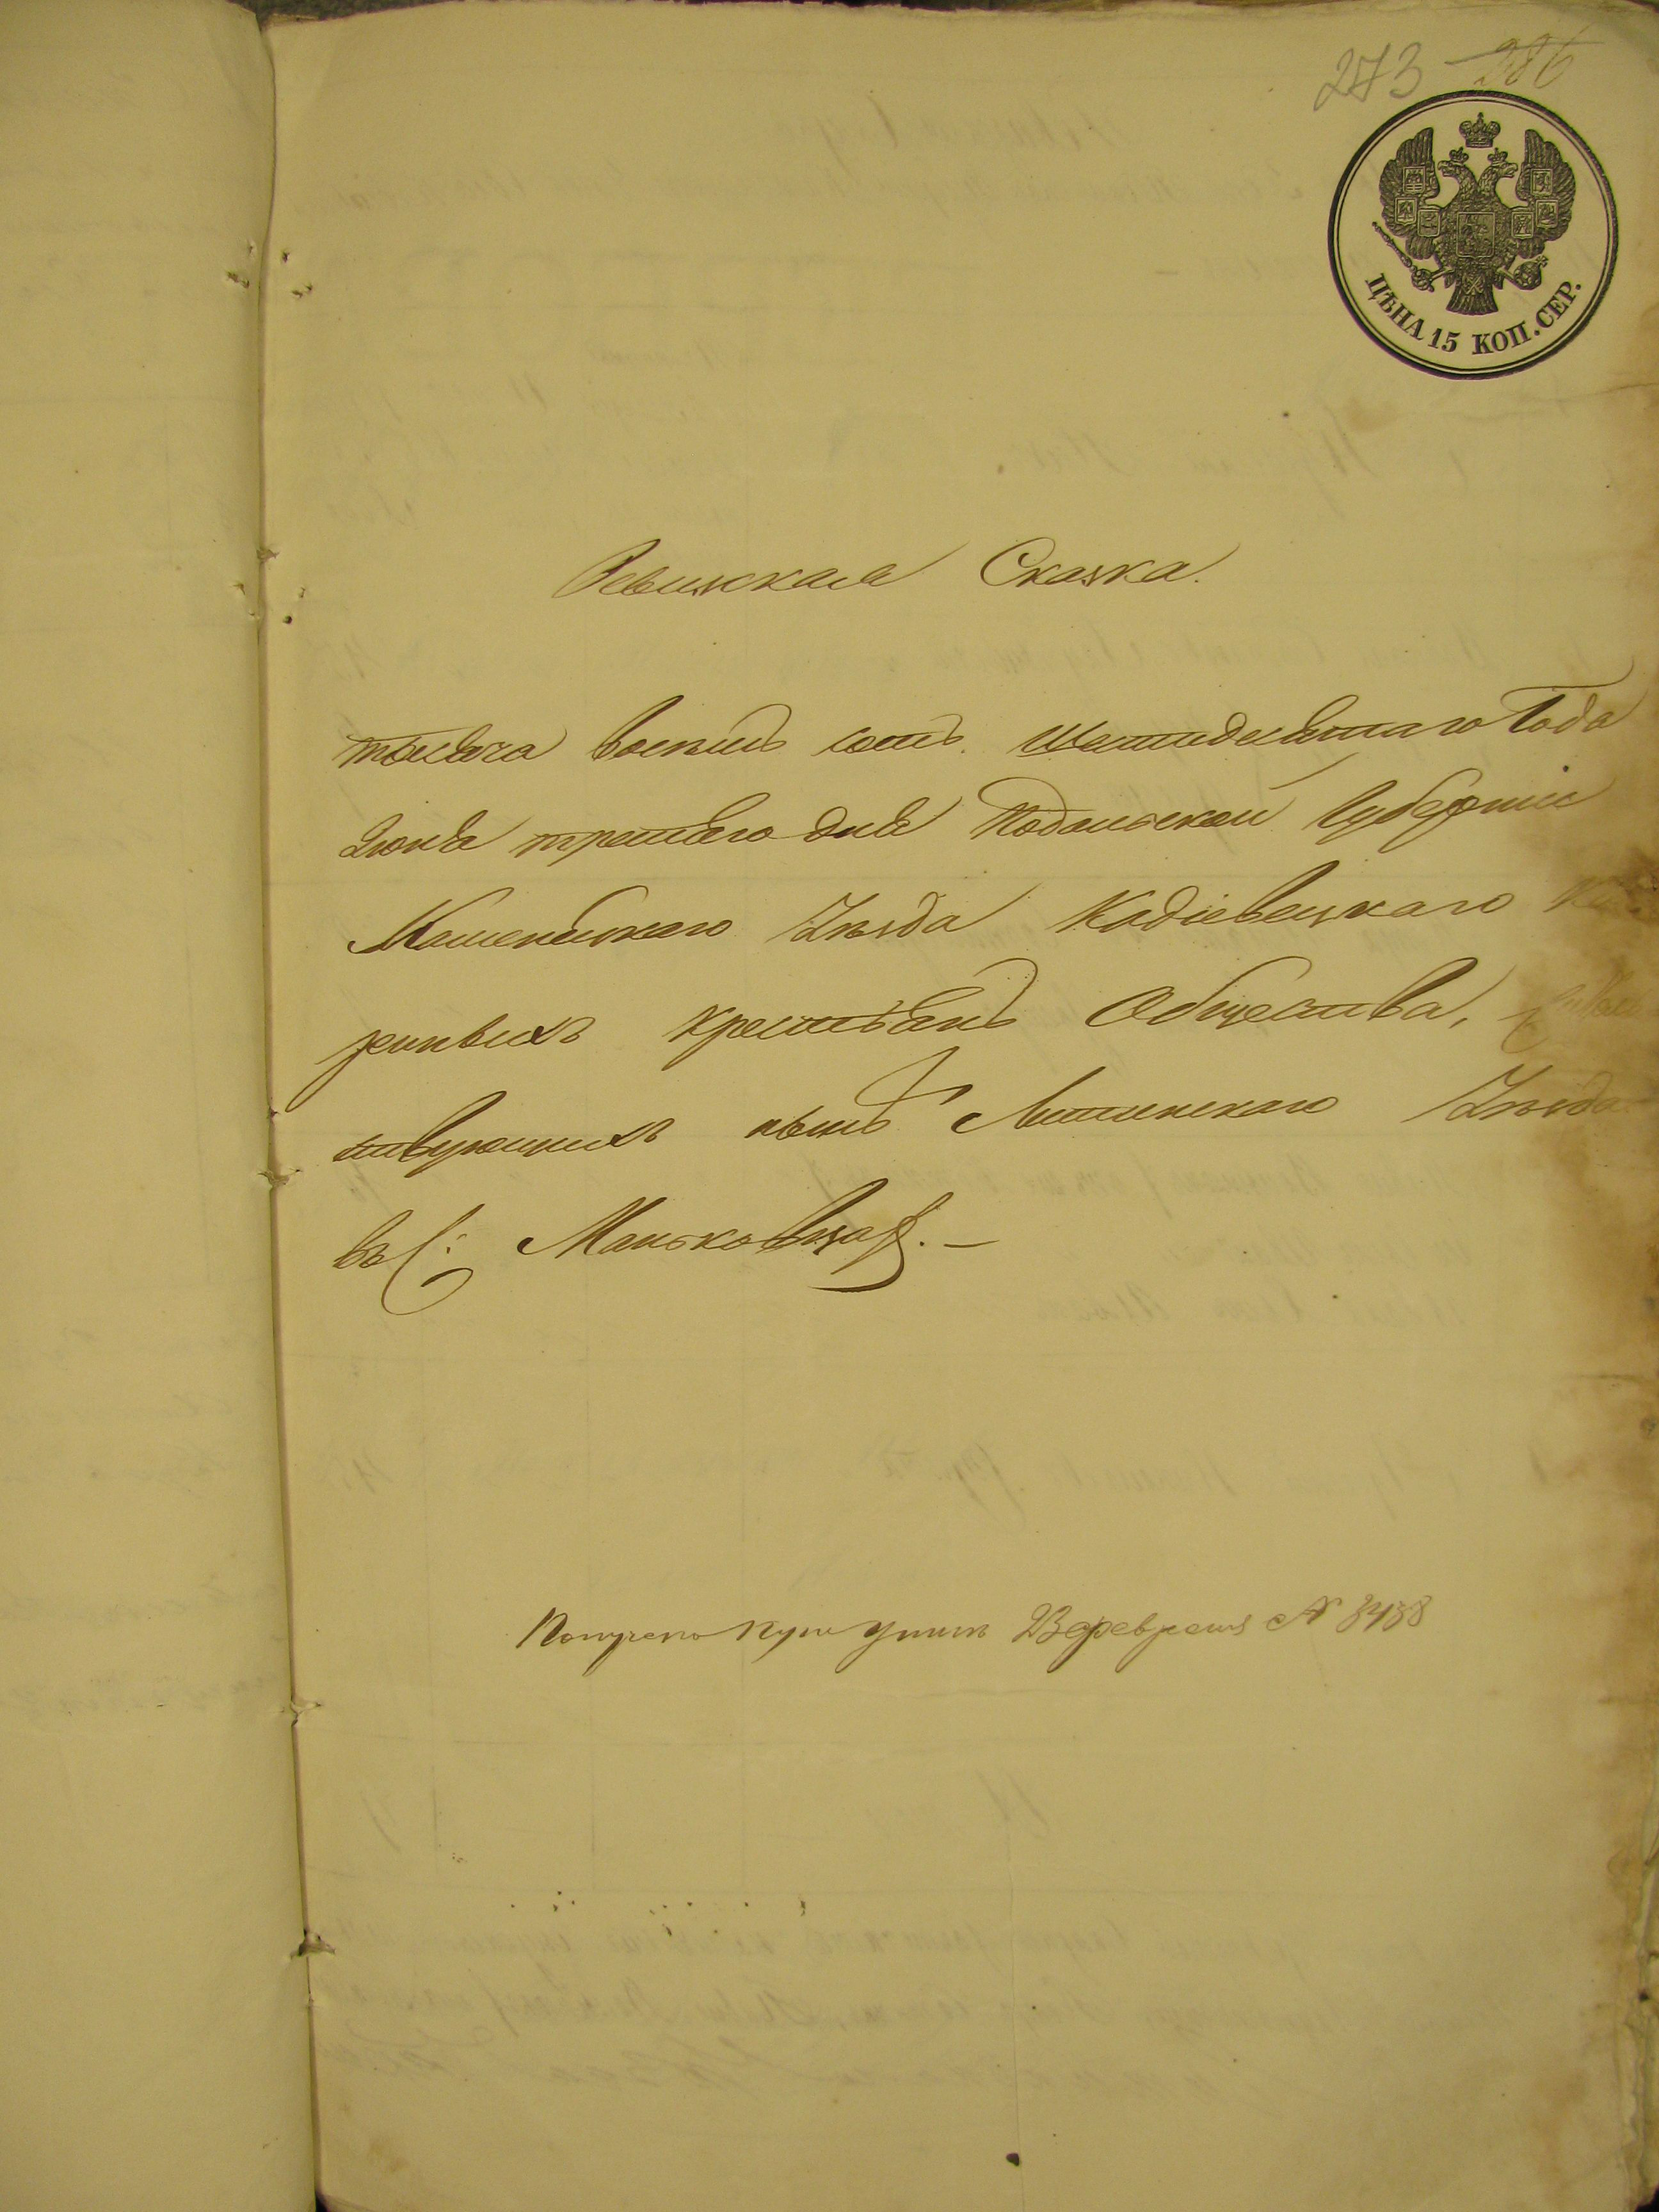 273 286
ЦѢНА 15 КОП. СЕР.
Ревизская Сказка.
тысяча восемь сотъ шестидесятаго Года
Іюня третьяго дня Подольской Губерніи
Каменецкаго Уѣзда Кадіевецкаго Ка
зенныхъ крестьянъ Общества,
ствующихъ нынѣ Летинскаго Уѣзда
въ С: Маньковцах. —
Получено при № 8488